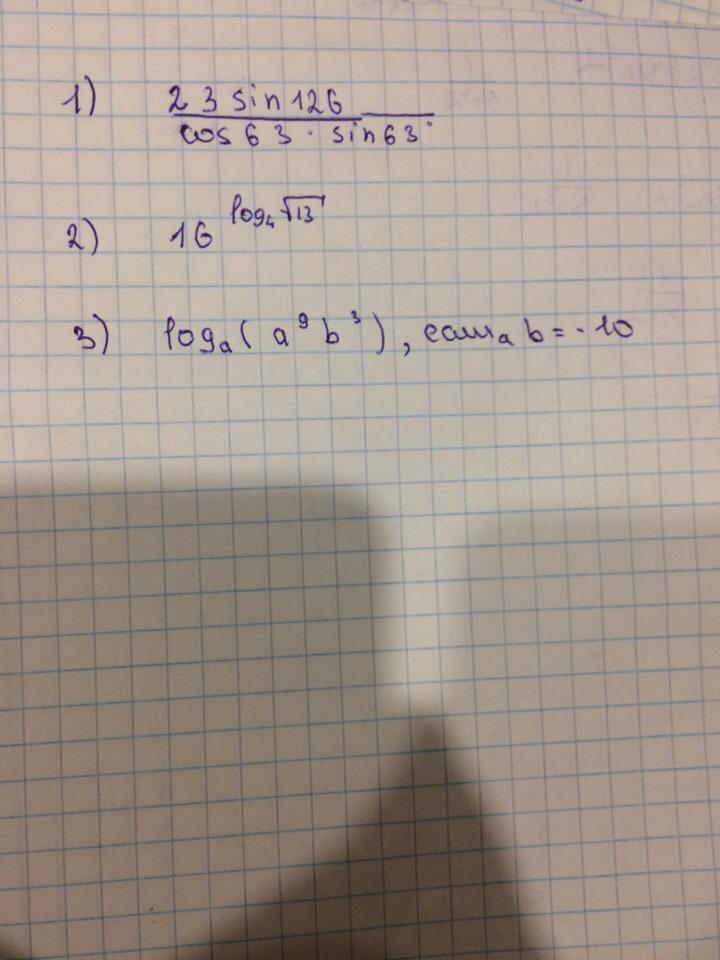 1) 23 sin 126
cos 63 · sin 63°
2) 16^log₄√13
3) logₐ( a⁹ b³ ) , если ₐ b = - 10